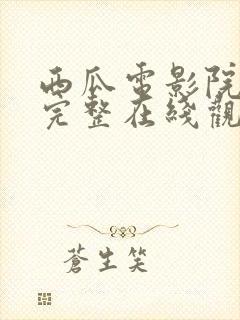 西瓜電影院
完整在綫觀
蒼生笑